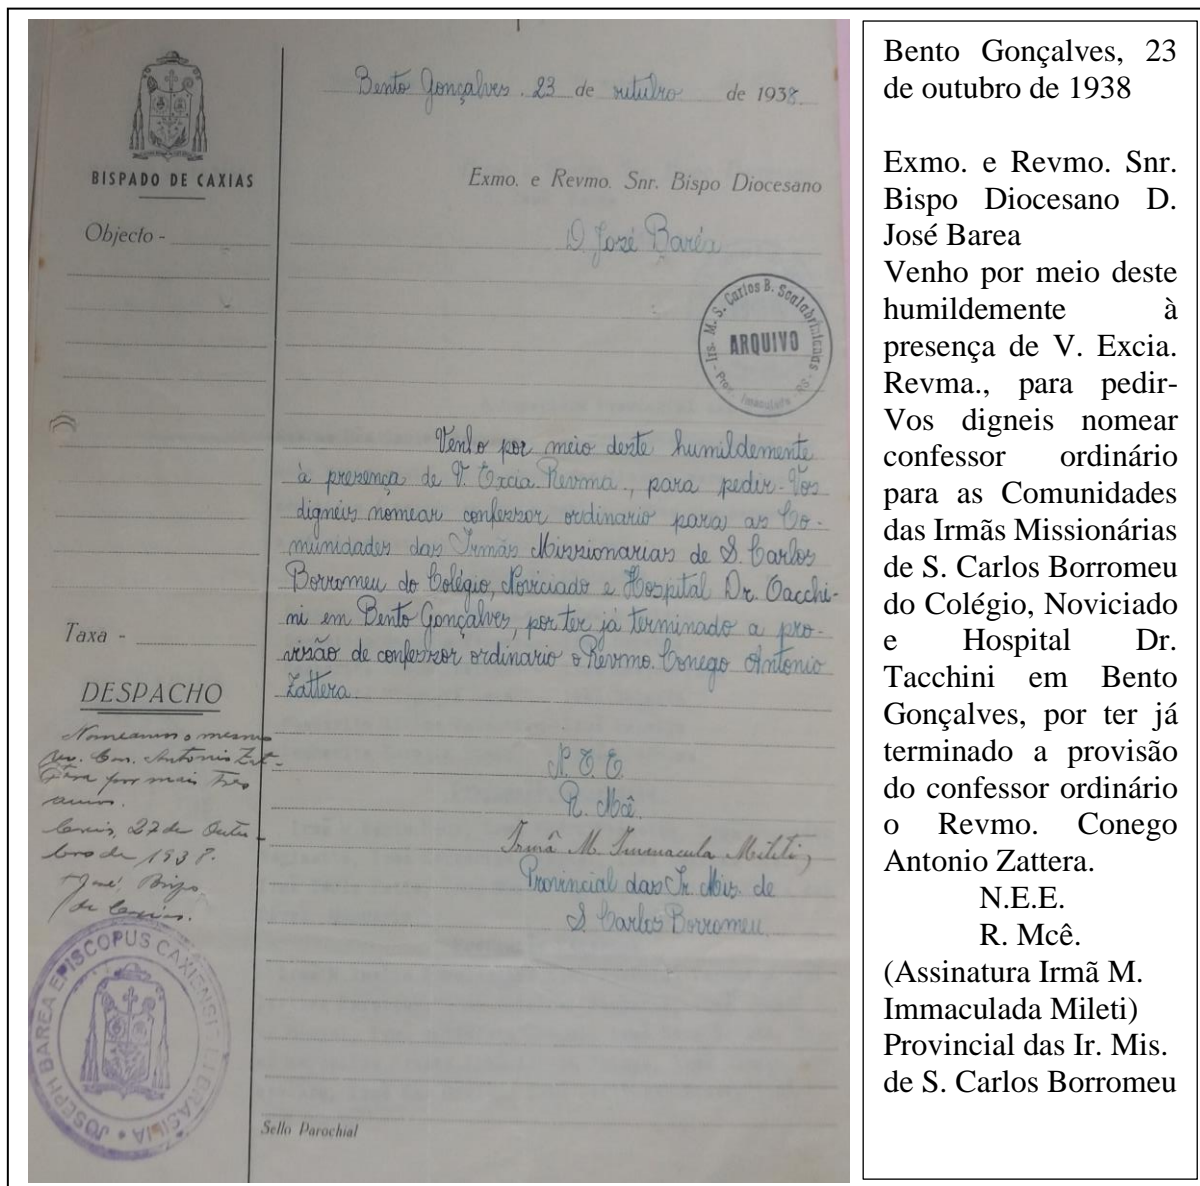 BISPADO DE CAXIAS
Objecto -
Taxa -
DESPACHO
Nomeamos o mesmo
rev. Con. Antonio Zat-
tera por mais tres
annos.
Caxias, 27 de Outu-
bro de 1938.
† José, Bispo
de Caxias.
JOSEPH BAREA EPISCOPUS CAXIENSIS
Bento Gonçalves, 23 de outubro de 1938.
Exmo. e Revmo. Snr. Bispo Diocesano
D. José Baréa
Irs. M. S. Carlos B. Scalabrinianas
ARQUIVO
Prov. Imaculata RS
Venho por meio deste humildemente
à presença de V. Excia. Revma., para pedir-Vos
digneis nomear confessor ordinario para as Co-
munidades das Irmãs Missionarias de S. Carlos
Borromeu do Colégio, Noviciado e Hospital Dr. Tacchi-
ni em Bento Gonçalves, por ter já terminado a pro-
visão de confessor ordinario o Revmo. Conego Antonio
Zattera.
N. E. E.
R. Mcê.
Irmã M. Immacula Mileti,
Provincial das Ir. Mis. de
S. Carlos Borromeu.
Sello Parochial
Bento Gonçalves, 23
de outubro de 1938
Exmo. e Revmo. Snr.
Bispo Diocesano D.
José Barea
Venho por meio deste
humildemente à
presença de V. Excia.
Revma., para pedir-
Vos digneis nomear
confessor ordinário
para as Comunidades
das Irmãs Missionárias
de S. Carlos Borromeu
do Colégio, Noviciado
e Hospital Dr.
Tacchini em Bento
Gonçalves, por ter já
terminado a provisão
do confessor ordinário
o Revmo. Conego
Antonio Zattera.
N.E.E.
R. Mcê.
(Assinatura Irmã M.
Immaculada Mileti)
Provincial das Ir. Mis.
de S. Carlos Borromeu